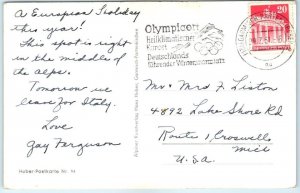 A European Holiday
this year!
This spot is right
in the middles of
the alps.
Tomorrow we
leave for Italy.
Love
Gay Ferguson
Huber-Postkarte, Nr. 14
Olympiaort
Heilklimatischer
Kurort
Deutschlands
führender Wintersportplatz
20
Mr. Mrs J Liston
4892 Lake Shore Rd
Route 1, Croswell
Mich
U.S.A.